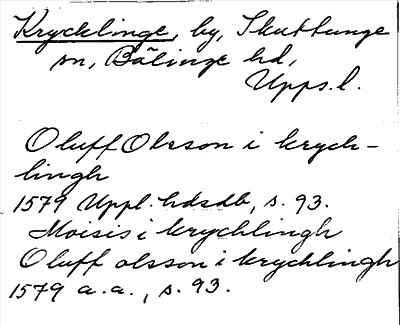 Krycklinge, by, Skuttunge
sn, Bälinge hd,
Upps. l.
Oluff Olsson i krych-
lingh
1579 Uppl. hdsdb, s. 93.
Moisis i krychlingh
Oluff olsson i krychlingh
1579 a. a., s. 93.